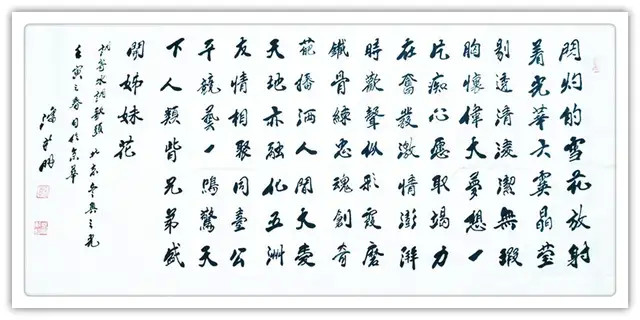 閃灼的雪花放射
着光華六霙晶瑩
剔透清淩潔無瑕
胸懷偉大夢想一
片痴心愿取竭力
在奮發激情澎湃
時歡聲似彩霞磨
鐵骨練忠魂創奇
葩播洒人間大愛
天地亦融化五洲
友情相聚同臺公
平競藝一鳴驚天
下人類皆兄弟盛
開姊妹花
調寄水調歌頭 北京冬奧之光
壬寅之春月於京華